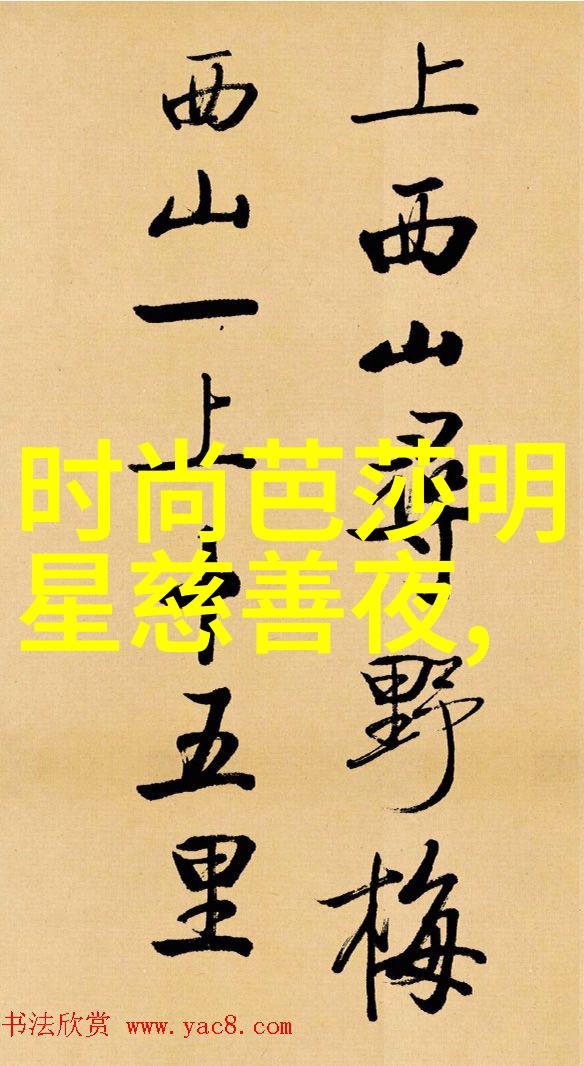 上西山尋野梅
西山一上十五里
时尚芭莎明
星慈善夜,
书法欣赏 www.yac8.com